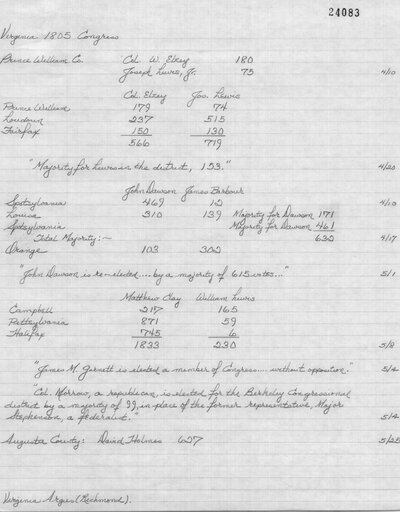 24083
Virginia 1805 Congress
Prince William Co. Col. W. Elzey 180
Joseph Lewis, Jr. 75 4/10
Col. Elzey Jos. Lewis
Prince William 179 74
Loudoun 237 515
Fairfax 150 130
566 719
"Majority for Lewis in the district, 153." 4/20
John Dawson James Barbour
Spotsylvania 469 12 4/10
Louisa 310 139 Majority for Dawson 171
Spotsylvania Majority for Dawson 461
Total Majority:— 632 4/17
Orange 103 302
"John Dawson is re-elected....by a majority of 615 votes..." 5/1
Matthew Clay William Lewis
Campbell 217 165
Pittsylvania 871 59
Halifax 745 6
1833 230 5/8
"James M. Garnett is elected a member of Congress....without opposition." 5/4
"Col. Morrow, a republican, is elected for the Berkeley Congressional
district by a majority of 99, in place of the former representative, Major
Stephenson, a federalist." 5/4
Augusta County: David Holmes 627 5/25
Virginia Argus (Richmond).